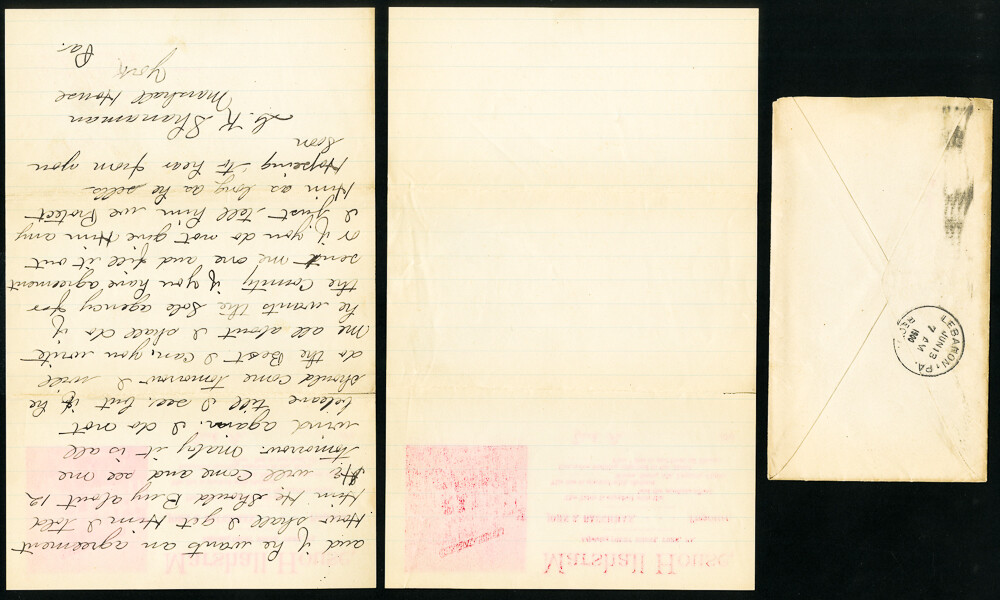 and if he wants an agreement
How shall I get Him I told
Him He Should Buy about 12
He will come and see me
tomorrow. maby it is all
wind again. I do not
beleave till I see. but if he
Should come tomorrow I will
do the Best I can, you write
me all about I shall do if
he wants the Sole agency for
the Comity if you have agreement
send me one and fill it out
or if you do not give Him any
I just tell him we Protect
Him as long as he sells
Hopeing to hear from you
Soon
K Shanaman
Marshall House
York
Pa.
Marshall House.
LEBANON, PA.
JUN 13
7 AM
1900
REC'D